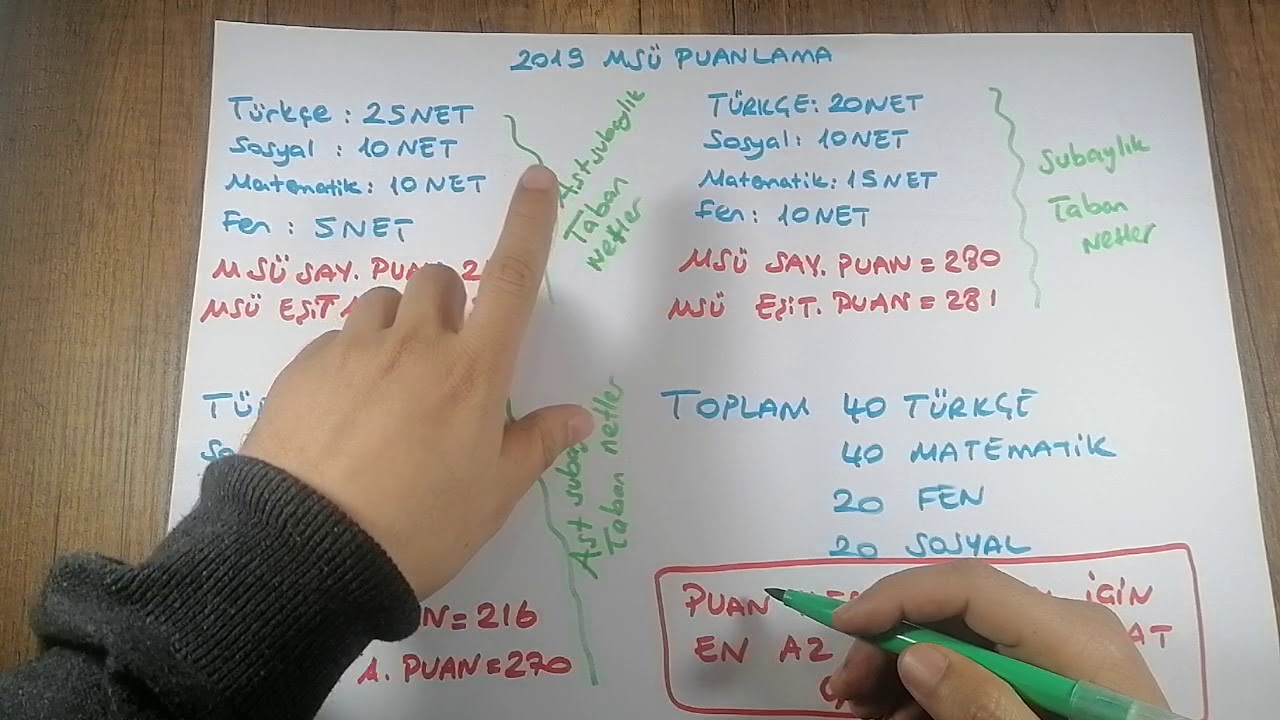 2019 MSÜ PUANLAMA
Türkçe : 25 NET
Sosyal : 10 NET
Matematik : 10 NET
Fen : 5 NET
MSÜ SAY. PUAN
MSÜ EŞİT
Ast subaylık
Taban
Netler
TÜRKÇE: 20 NET
Sosyal: 10 NET
Matematik: 15 NET
Fen: 10 NET
MSÜ SAY. PUAN = 280
MSÜ EŞİT. PUAN = 281
Subaylık
Taban
Netler
= 216
A. PUAN = 270
Ast
Taban netler
TOPLAM 40 TÜRKÇE
40 MATEMATİK
20 FEN
20 SOSYAL
PUAN İÇİN
EN AZ